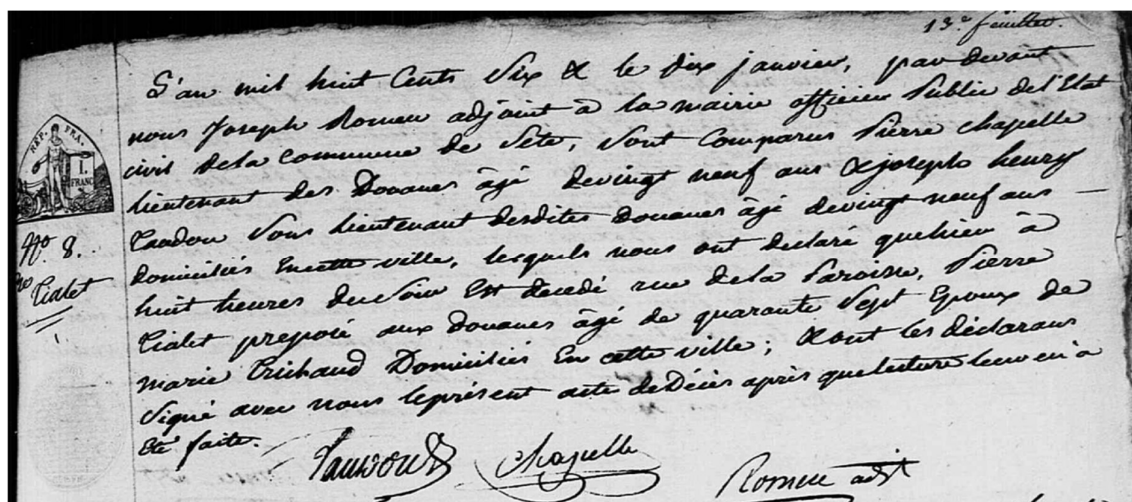 13e feuillet.
L'an mil huit Cents Six & le dix janvier, pardevant
nous Joseph Romeu adjoint à la mairie officier Public de l'Etat
civil de la Commune de Sète, Sont Comparus Pierre chapelle
lieutenant des Douanes âgé de vingt neuf ans & joseph henry
Sous lieutenant desdites douanes âgé devingt neuf ans —
domiciliés En cette ville, lesquels nous ont declaré quehier à
huit heures du Soir Est decedé rue de la Paroisse, Pierre
Cialet preposé aux douanes âgé de quarante Sept Epoux de
marie Trichaud Domiciliés En cette ville; & ont les déclarans
Signé avec nous leprésent acte de Décès après que lecture leur en a
Eté faite.
REP. FRA.
1. FRANC
No. 8.
Cialet
Chapelle
Romeu adjt